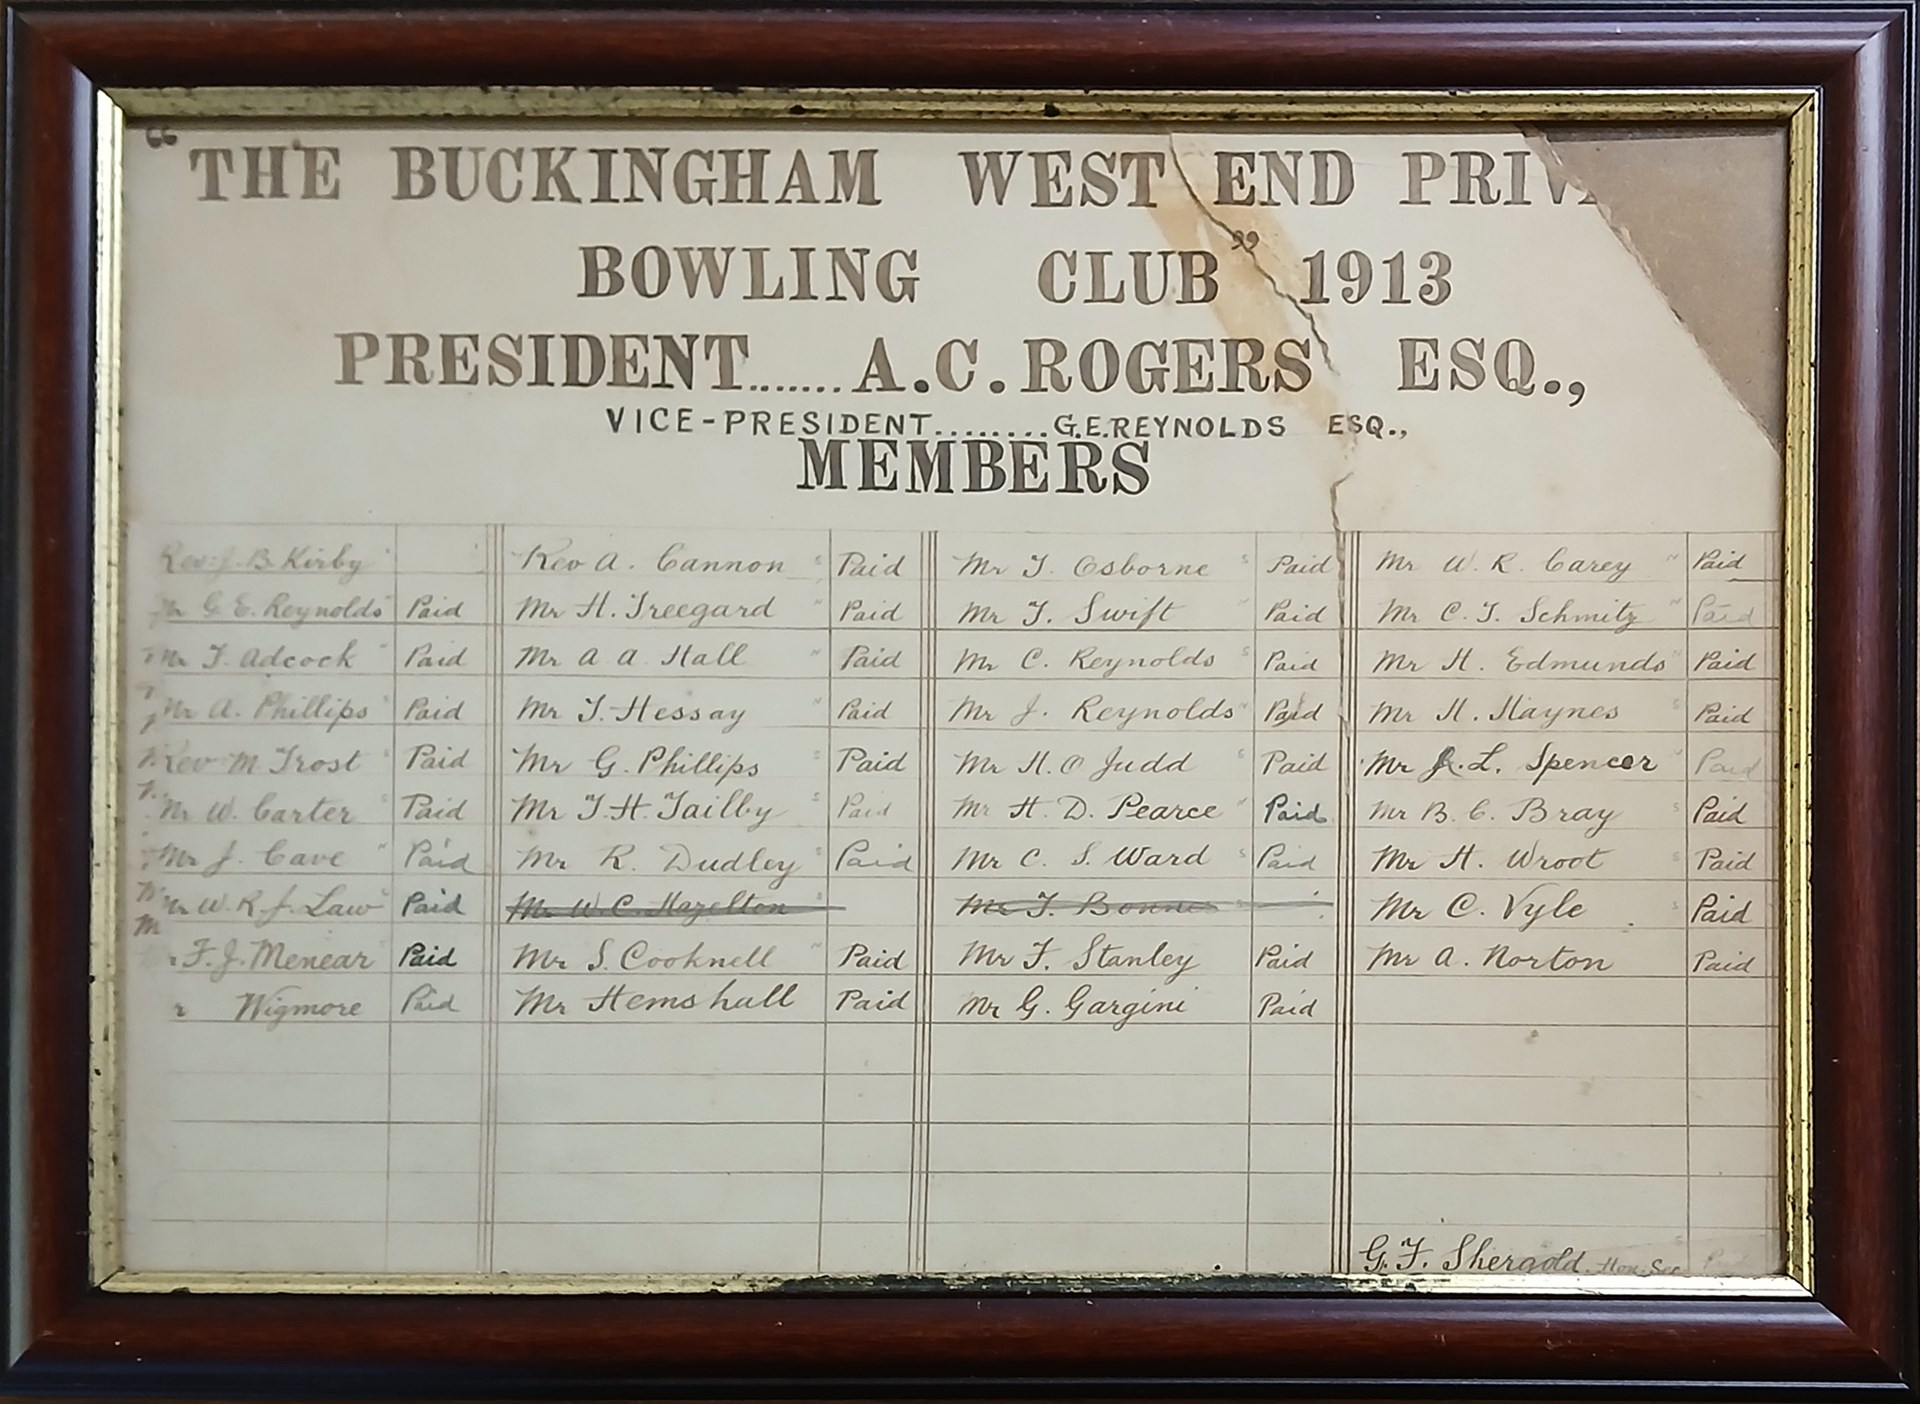 "THE BUCKINGHAM WEST END PRIV
BOWLING CLUB" 1913
PRESIDENT.......A.C.ROGERS ESQ.,
VICE-PRESIDENT........G.E.REYNOLDS ESQ.,
MEMBERS
Rev. J. B. Kirby Rev A. Cannon Paid Mr T. Osborne Paid Mr W. R. Carey Paid
Mr G. E. Reynolds Paid Mr H. Treegard Paid Mr T. Swift Paid Mr C. T. Schmitz Paid
Mr T. Adcock Paid Mr A A Hall Paid Mr C. Reynolds Paid Mr H. Edmunds Paid
Mr A. Phillips Paid Mr T. Hessay Paid Mr J. Reynolds Paid Mr H. Haynes Paid
Rev M Trost Paid Mr G. Phillips Paid Mr H. O Judd Paid Mr L. Spencer Paid
Mr W. Carter Paid Mr T. H. Tailby Paid Mr H. D. Pearce Paid Mr B. C. Bray Paid
Mr J. Cave Paid Mr R. Dudley Paid Mr C. S. Ward Paid Mr H. Wroot Paid
Mr W. R. J. Law Paid Mr W. C. Hazelton Mr T. Mr C. Vyle Paid
r F. J. Menear Paid Mr S. Cooknell Paid Mr F. Stanley Paid Mr A. Norton Paid
r Wigmore Paid Mr Hemshall Paid Mr G. Gargini Paid
G. F. Shergold. Hon. Sec